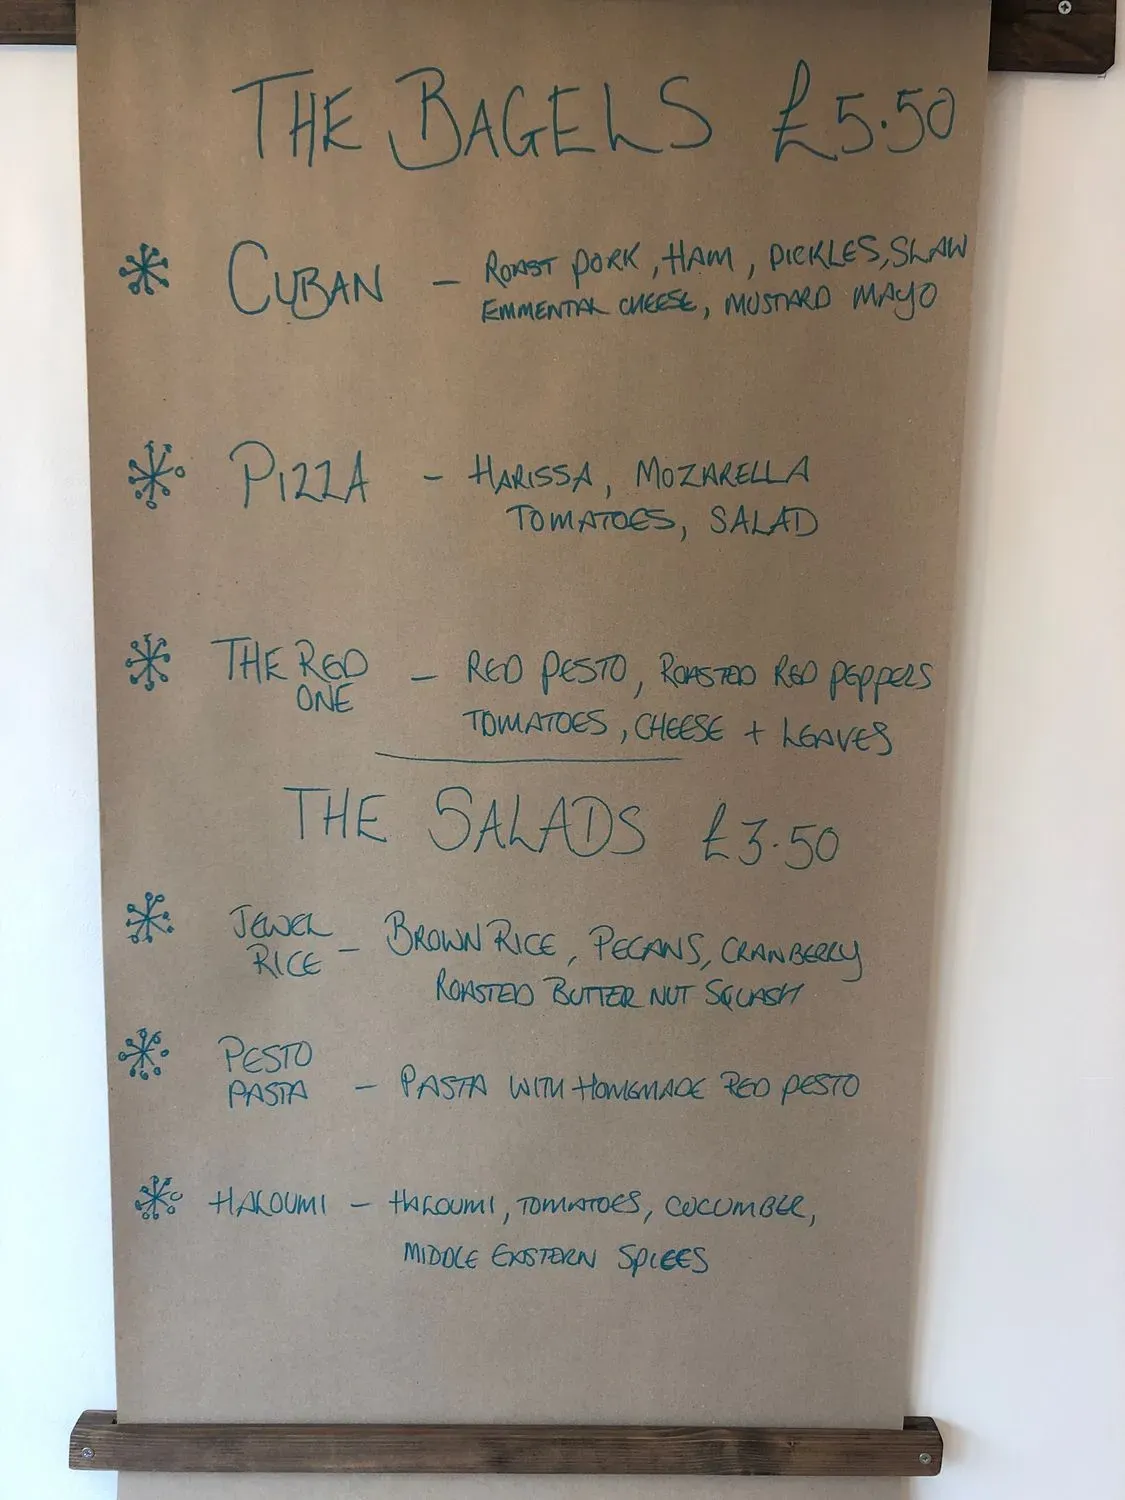 THE BAGELS £5.50
CUBAN - ROAST PORK, HAM, PICKLES, SLAW
EMMENTAL CHEESE, MUSTARD MAYO
PIZZA - HARISSA, MOZARELLA
TOMATOES, SALAD
THE RED ONE - RED PESTO, ROASTED RED PEPPERS
TOMATOES, CHEESE + LEAVES
THE SALADS £3.50
JEWEL RICE - BROWN RICE, PECANS, CRANBERRY
ROASTED BUTTER NUT SQUASH
PESTO
PASTA - PASTA WITH HOMEMADE RED PESTO
HALOUMI - HALOUMI, TOMATOES, CUCUMBER,
MIDDLE EASTERN SPICES